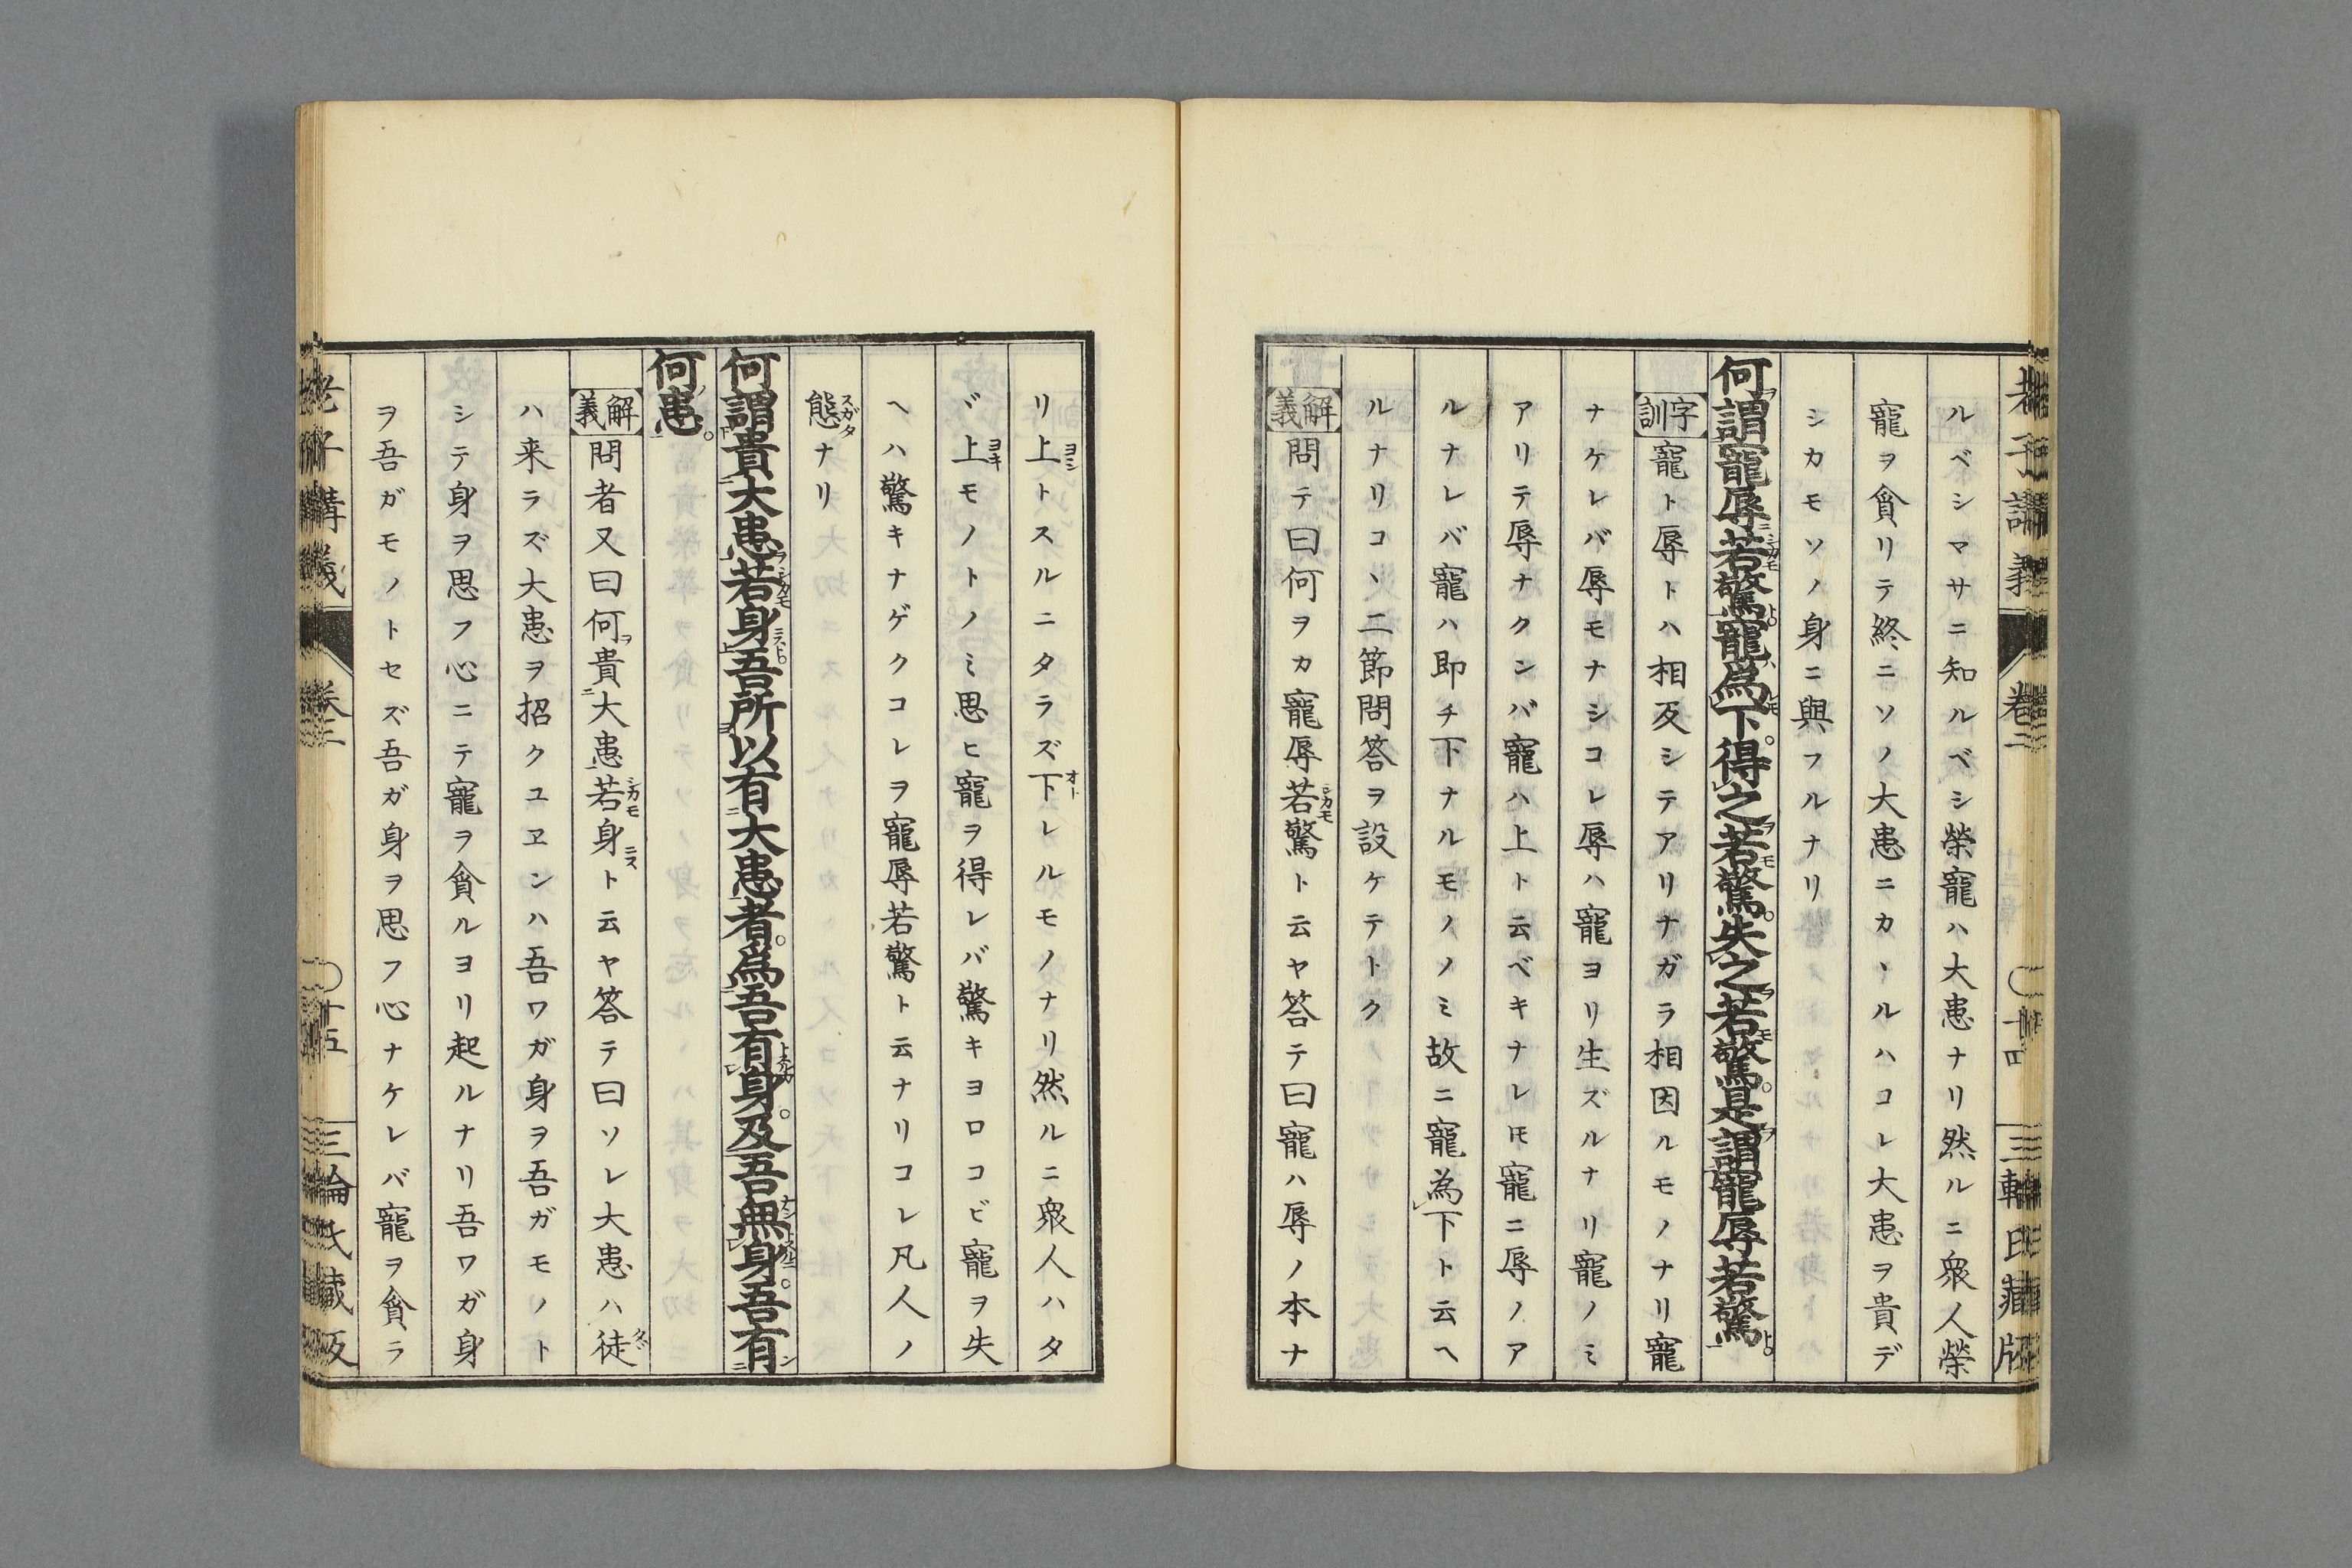 老子講義 卷二 〇十四 三輪氏藏版
ルベシマサニ知ルベシ榮寵ハ大患ナリ然ルニ衆人榮
寵ヲ貪リテ終ニソノ大患ニカヽルハコレ大患ヲ貴デ
シカモソノ身ニ與フルナリ
何謂寵辱若驚寵爲下得之若驚失之若驚是謂寵辱若驚
字訓 寵ト辱トハ相反シテアリナガラ相因ルモノナリ寵
ナケレバ辱モナシコレ辱ハ寵ヨリ生ズルナリ寵ノミ
アリテ辱ナクンバ寵ハ上ト云ベキナレ𪜈寵ニ辱ノア
ルナレバ寵ハ即チ下ナルモノノミ故ニ寵為下ト云ヘ
ルナリコヽ二節問答ヲ設ケテトク
解義 問テ曰何ヲカ寵辱若驚ト云ヤ答テ曰寵ハ辱ノ本ナ
リ上トスルニタラズ下レルモノナリ然ルニ衆人ハタ
ヾ上モノトノミ思ヒ寵ヲ得レバ驚キヨロコビ寵ヲ失
ヘハ驚キナゲクコレヲ寵辱若驚ト云ナリコレ凡人ノ
態ナリ
何謂貴大患若身吾所以有大患者爲吾有身及吾無身吾有
何患
解義 問者又曰何貴大患若身ト云ヤ答テ曰ソレ大患ハ徒
ハ来ラズ大患ヲ招クユヱンハ吾ワガ身ヲ吾ガモノト
シテ身ヲ思フ心ニテ寵ヲ貪ルヨリ起ルナリ吾ワガ身
ヲ吾ガモノトセズ吾ガ身ヲ思フ心ナケレバ寵ヲ貪ラ
老子講義 卷二 〇十五 三輪氏藏版